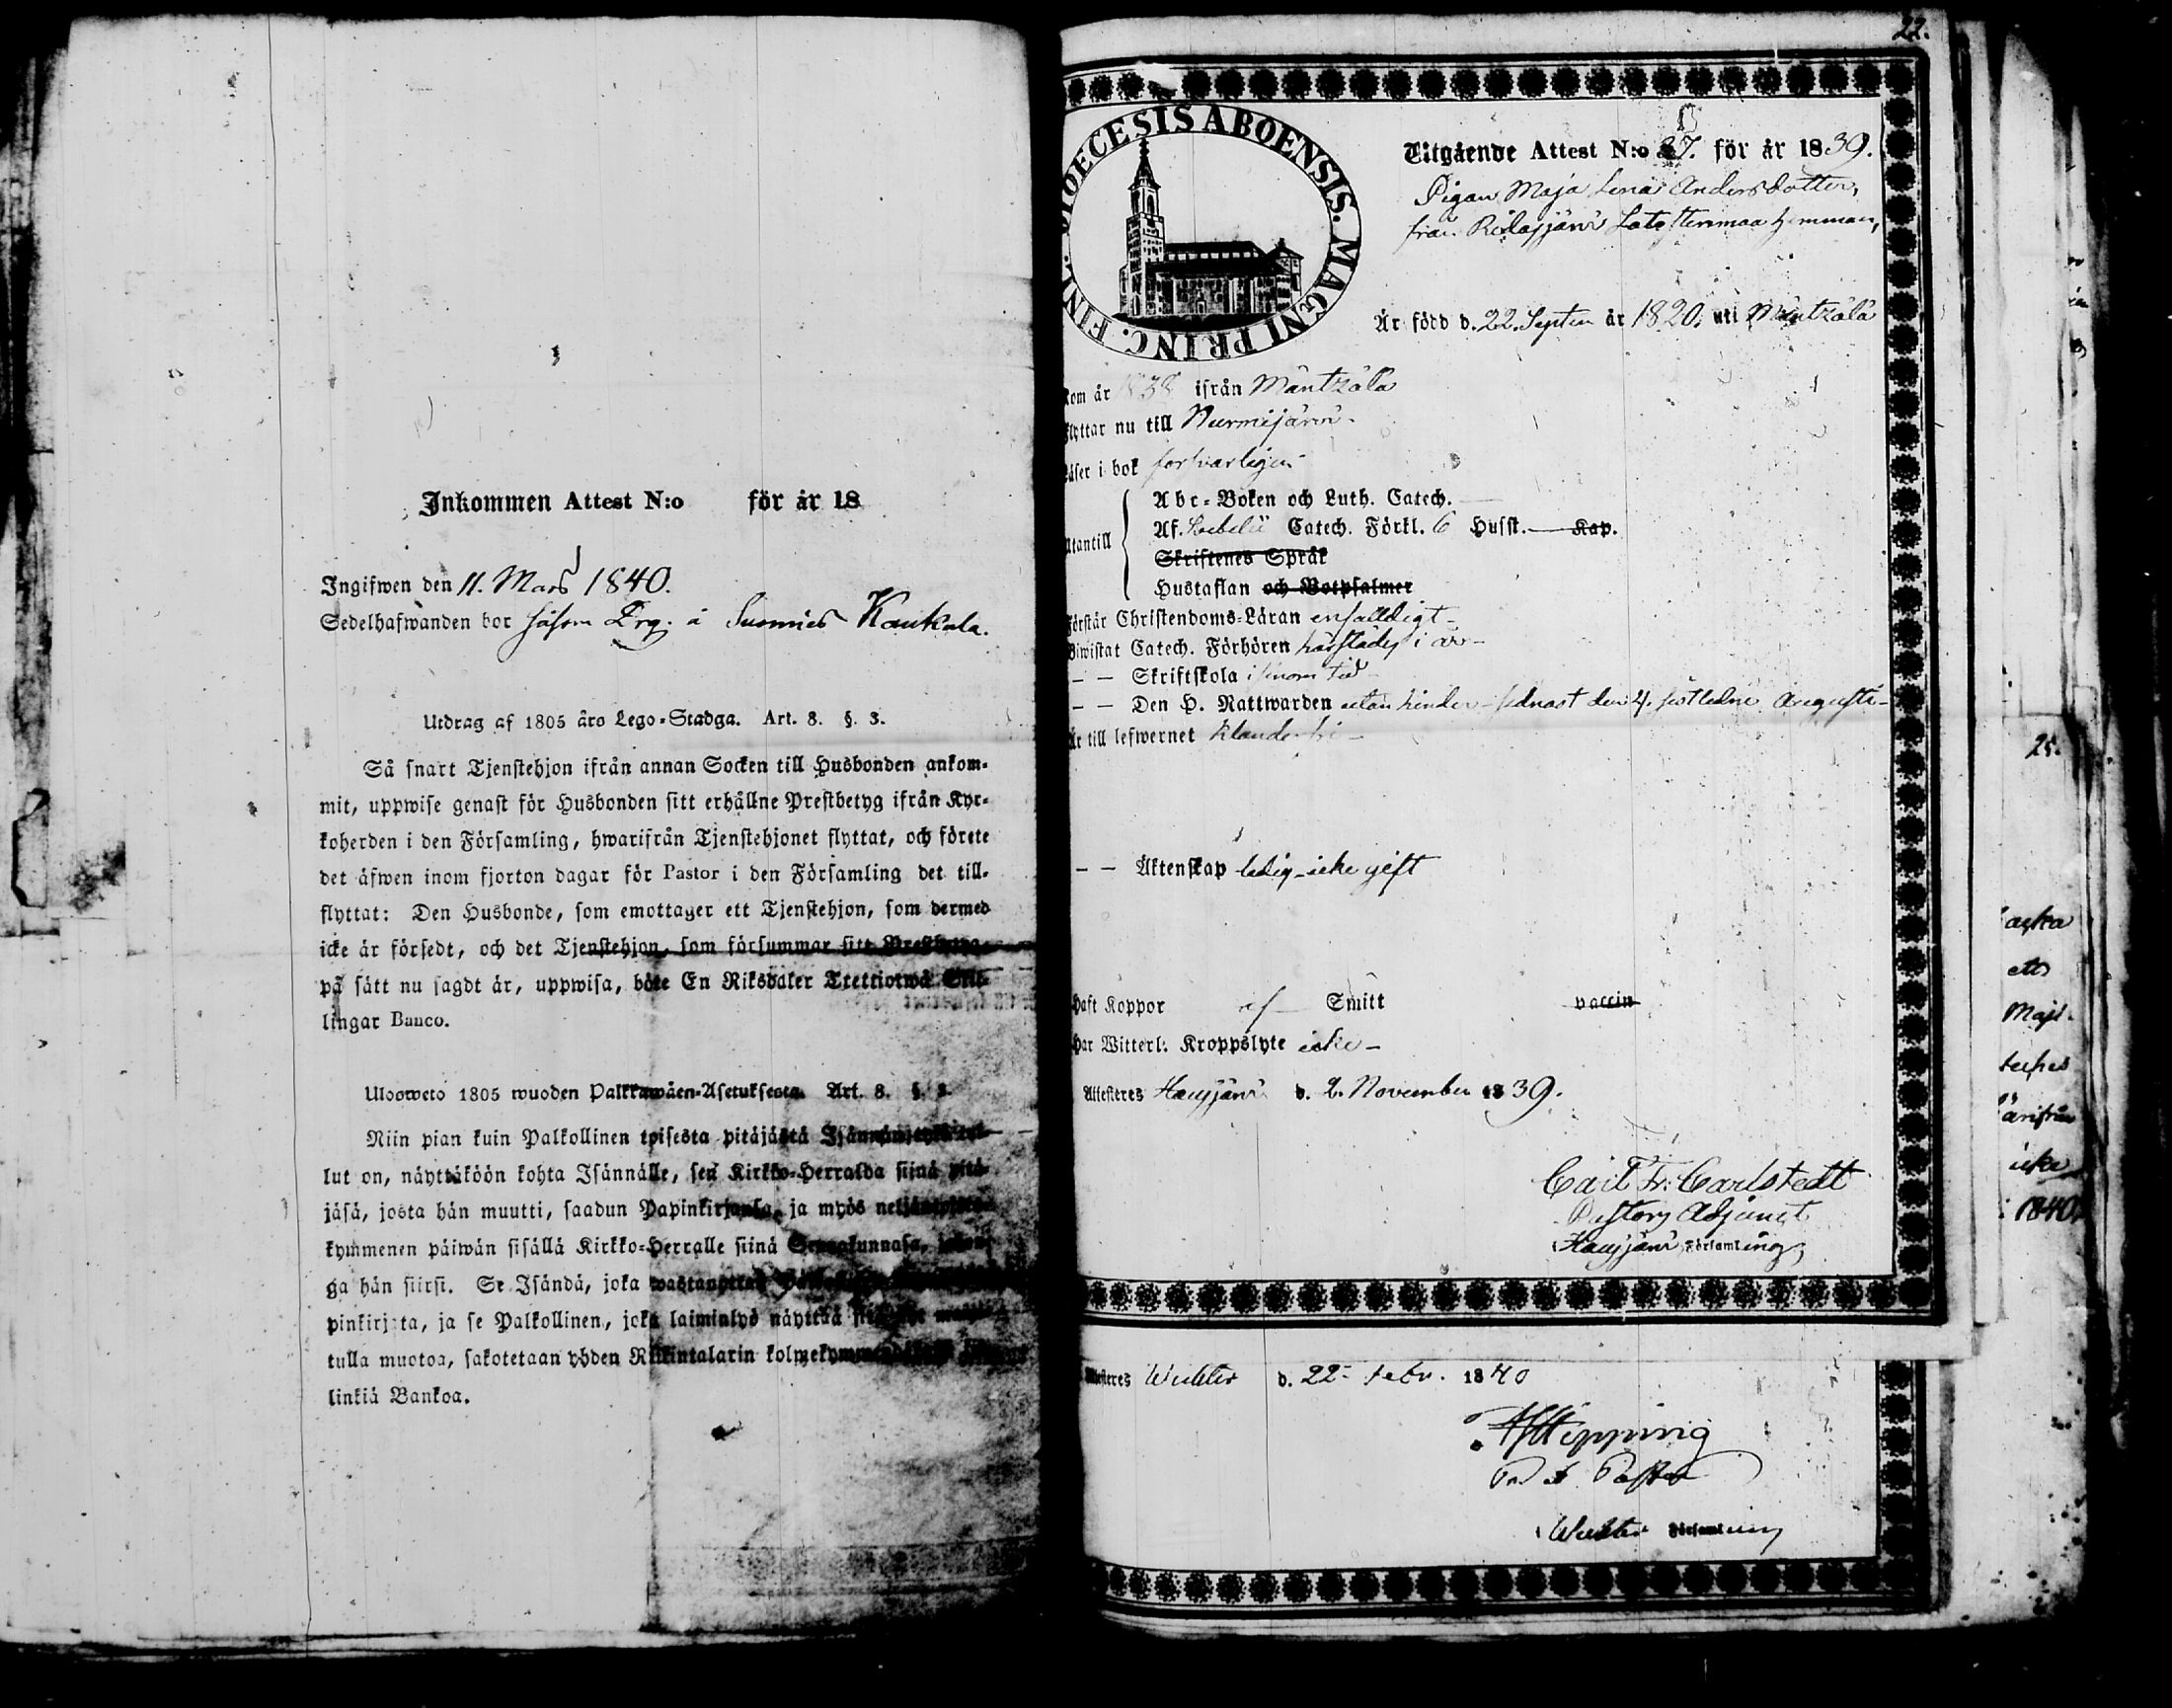 Inkommen Attest N:o för år 18
Ingifwen den 11. Mars 1840.
Sedelhafwanden bor såsom Drg. å Suomies Kaukala.
Utdrag af 1805 års Lego-Stadga. Art. 8. §. 3.
Så snart Tjenstehjon ifrån annan Socken till Husbonden ankom-
mit, uppwise genast för Husbonden sitt erhållne Prestbetyg ifrån Kyr-
koherden i den Församling, hwarifrån Tjenstehjonet flyttat, och förete
det äfwen inom fjorton dagar för Pastor i den Församling det till-
flyttat: Den Husbonde, som emottager ett Tjenstehjon, som dermed
icke är försedt, och det Tjenstehjon, som försummar sitt Prestbetyg
på sätt nu sagdt är, uppwisa, böte En Riksdaler Trettiotwå Skil-
lingar Banco.
Uloosweto 1805 wuoden Palkkawäen-Asetuksesta. Art. 8. §. 3.
Niin pian kuin Palkollinen toisesta pitäjästä Isännän tykö tul-
lut on, näyttäköön kohta Isännälle, sen Kirkko-Herralda siinä pitä-
jäsä, josta hän muutti, saadun Papinkirjansa, ja myös neljäntoista-
kymmenen päiwän sisällä Kirkko-Herralle siinä Seurakunnasa, johon-
ga hän siirsi. Se Isändä, joka wastanottaa
pinkirjata, ja se Palkollinen, joka laiminlyö näyttää
tulla muotoa, sakotetaan yhden Riikintalarin kolmekymmendä
linkiä Bankoa.
22.
DIOECESIS ABOENSIS. MAGNI PRINC. FINL.
Utgående Attest N:o 37. för år 1839.
Pigan Maja Lena Andersdotter,
från hemman,
Är född d. 22. Septem år 1820. uti Mäntzälä
Kom år 1838 ifrån Mäntzälä
Flyttar nu till Nurmijärvi.
Läser i bok försvarligen
Utantill
Abc-Boken och Luth. Catech.
Af. Sebelii Catech. Förkl. 6 Husst. Kap.
Skriftenes Språk
Hustaflan och Botpsalmer
Förstår Christendoms-Läran enfaldigt
Biwistat Catech. Förhören härstädes i år
– – Skriftskola i sinom tid
– – Den H. Nattwarden utan hinder sednast den 4. sistledne Augusti
Är till lefwernet klanderfri
– – Äktenskap ledig icke gift
Haft Koppor af Smitt vaccin
Har Witterl. Kroppslyte icke
Attesteres Hausjärvi d. 2. November 1839.
Carl Fr: Carlstedt
Pastors Adjunct
i Hausjärvi Församling
Attesteres Wichtis d. 22 Febr. 1840
AJHipping
Pr & Pastor
i Wichtis Församling
25.
Majs.
icke
1840.